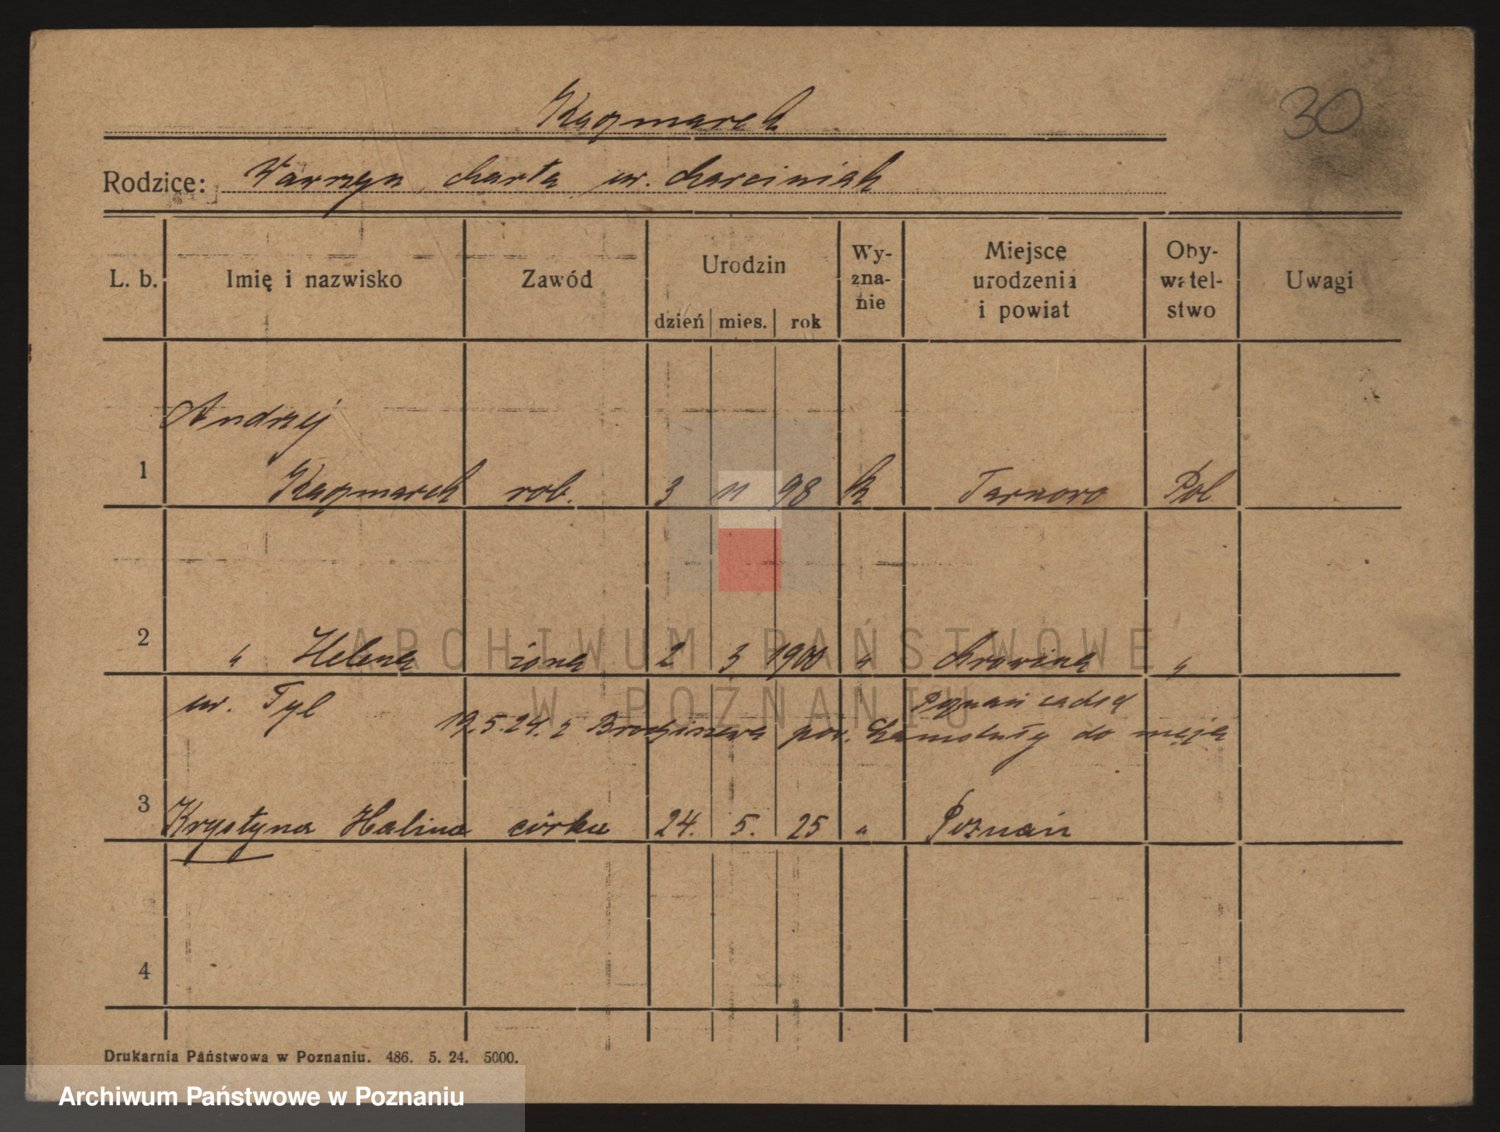 30
Kaczmarek
Rodzice: Wawrzyn, Marta ur. Marciniak
L. b. Imię i nazwisko Zawód Urodzin dzień mies. rok Wy-zna-nie Miejsce urodzenia i powiat Oby-watel-stwo Uwagi
Andrzej
1 Kaczmarek rob. 3 11 98 k Tarnowo Pol
2 " Helena żona 2 3 1900 " Mrowina "
ur. Tyl Poznań
19.5.24. z pow. Szamotuły do męża
3 Krystyna Halina córka 24. 5. 25 " Poznań
4
Drukarnia Państwowa w Poznaniu. 486. 5. 24. 5000.
ARCHIWUM PAŃSTWOWE
W POZNANIU
Archiwum Państwowe w Poznaniu